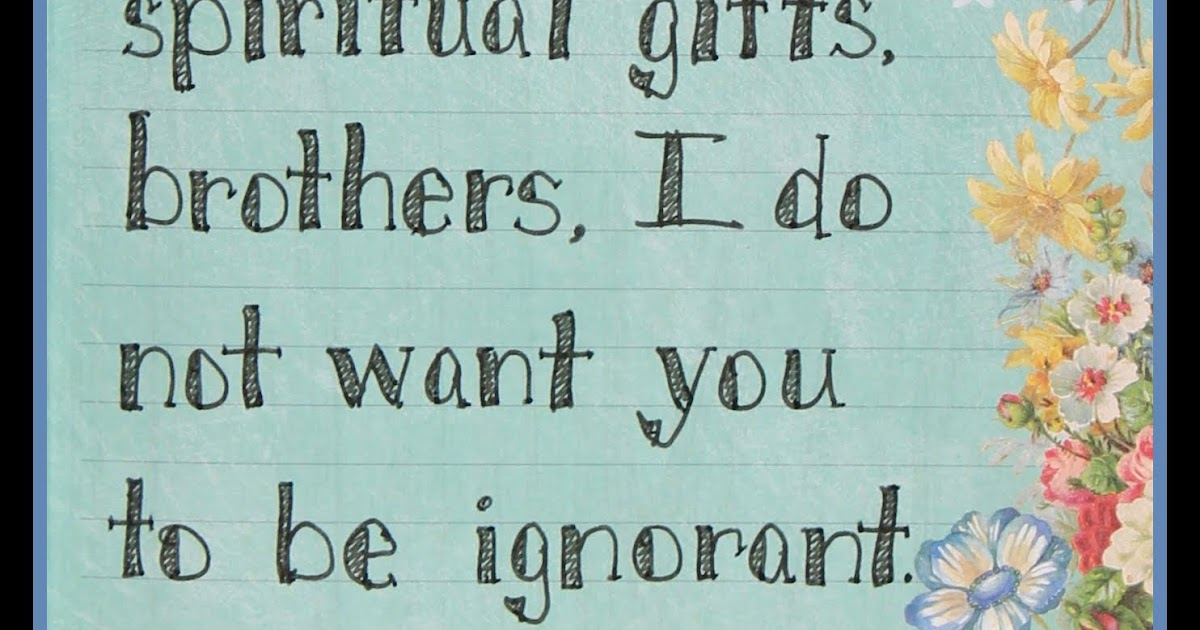 spiritual gifts,
brothers, I do
not want you
to be ignorant.